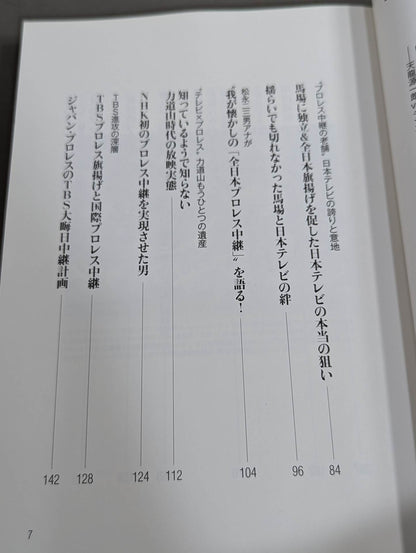 “プロレス中継の老舗”日本テレビの誇りと意地
馬場に独立&全日本旗揚げを促した日本テレビの本当の狙い 84
揺らいでも切れなかった馬場と日本テレビの絆 96
松永二三男アナが
“我が懐かしの「全日本プロレス中継」”を語る! 104
“テレビ×プロレス”力道山もうひとつの遺産
知っているようで知らない
力道山時代の放映実態 112
NHK初のプロレス中継を実現させた男 124
TBS漂攻の深層
TBSプロレス旗揚げと国際プロレス中継 128
ジャパン・プロレスのTBS大晦日中継計画 142
7